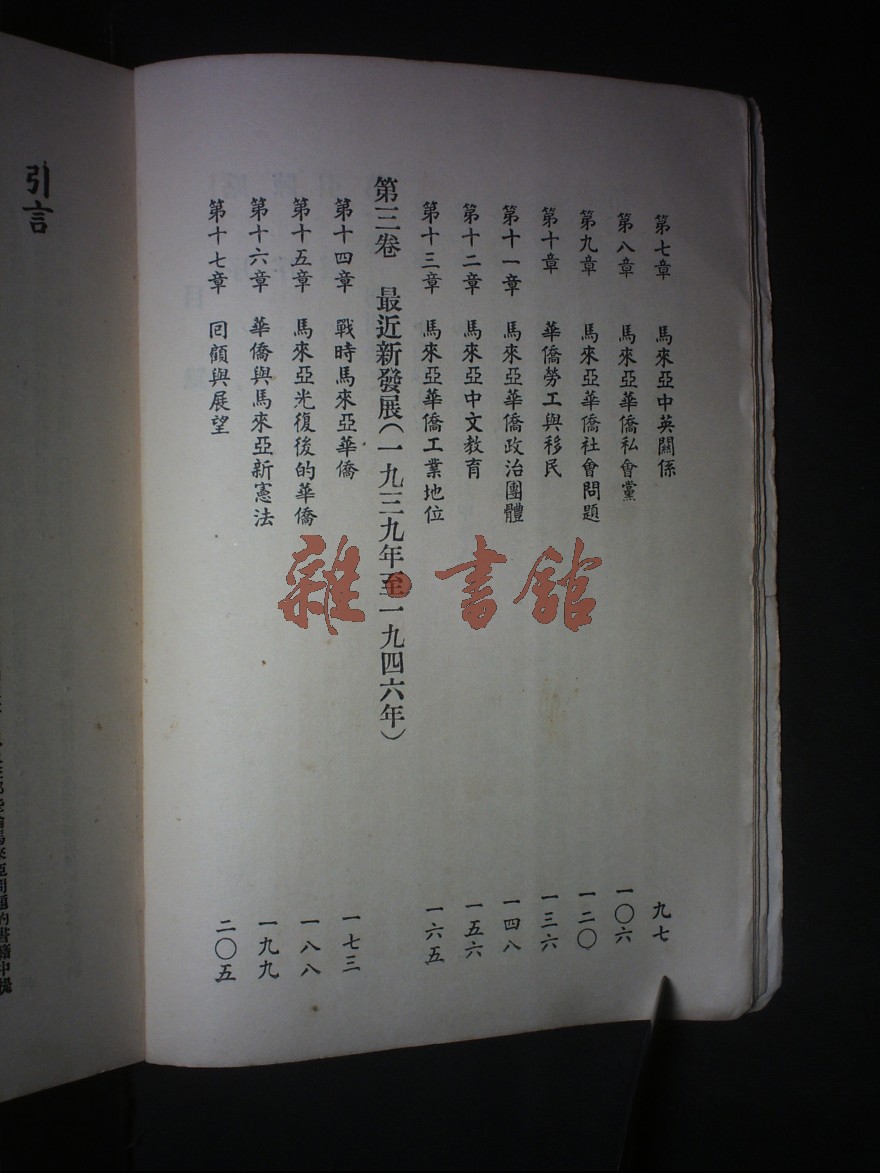 第七章 馬來亞中英關係 九七
第八章 馬來亞華僑私會黨 一〇六
第九章 馬來亞華僑社會問題 一二〇
第十章 華僑勞工與移民 一三六
第十一章 馬來亞華僑政治團體 一四八
第十二章 馬來亞中文教育 一五六
第十三章 馬來亞華僑工業地位 一六五
第三卷 最近新發展(一九三九年至一九四六年)
第十四章 戰時馬來亞華僑 一七三
第十五章 馬來亞光復後的華僑 一八八
第十六章 華僑與馬來亞新憲法 一九九
第十七章 回顧與展望 二〇五
雜·書館
引言
馬來亞問題的書籍中